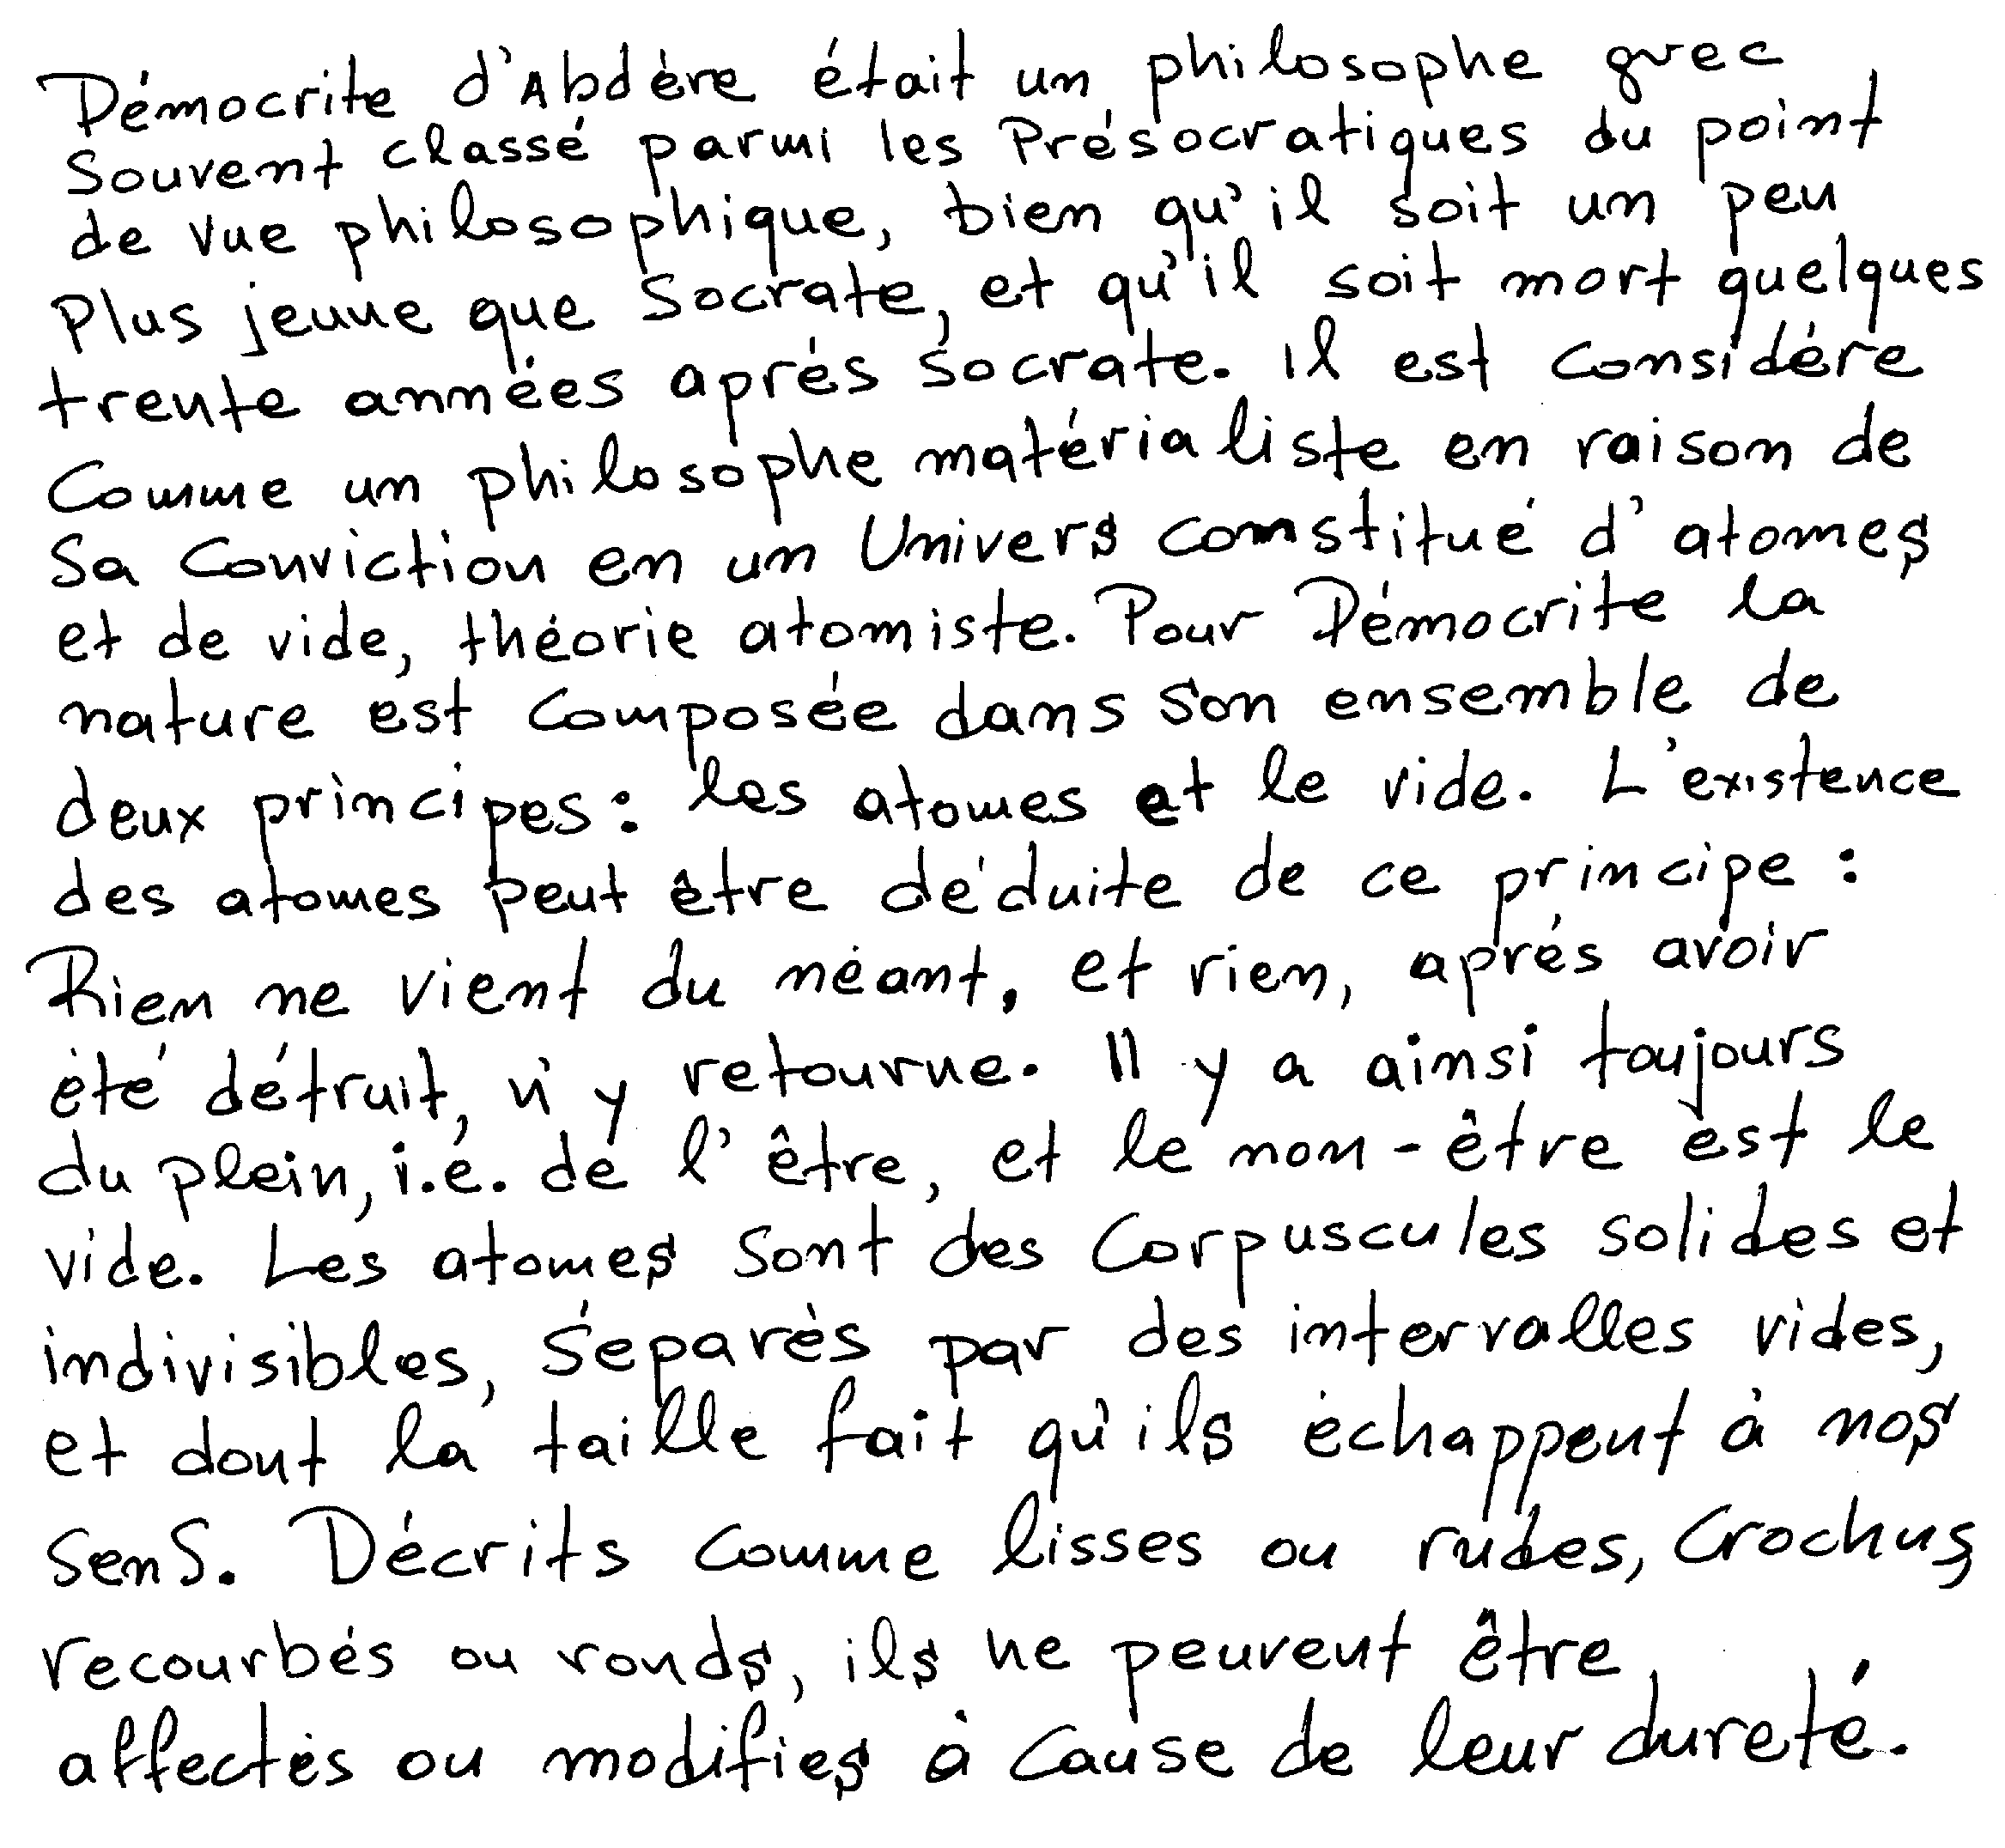 Démocrite d'Abdère était un philosophe grec
souvent classé parmi les Présocratiques du point
de vue philosophique, bien qu'il soit un peu
plus jeune que Socrate, et qu'il soit mort quelques
trente années après Socrate. Il est considéré
comme un philosophe matérialiste en raison de
sa conviction en un Univers constitué d'atomes
et de vide, théorie atomiste. Pour Démocrite la
nature est composée dans son ensemble de
deux principes: les atomes et le vide. L'existence
des atomes peut être déduite de ce principe :
Rien ne vient du néant, et rien, après avoir
été détruit, n'y retourne. Il y a ainsi toujours
du plein, i.e. de l'être, et le non-être est le
vide. Les atomes sont des corpuscules solides et
indivisibles, séparés par des intervalles vides,
et dont la taille fait qu'ils échappent à nos
sens. Décrits comme lisses ou rudes, crochus,
recourbés ou ronds, ils ne peuvent être
affectés ou modifiés à cause de leur dureté.